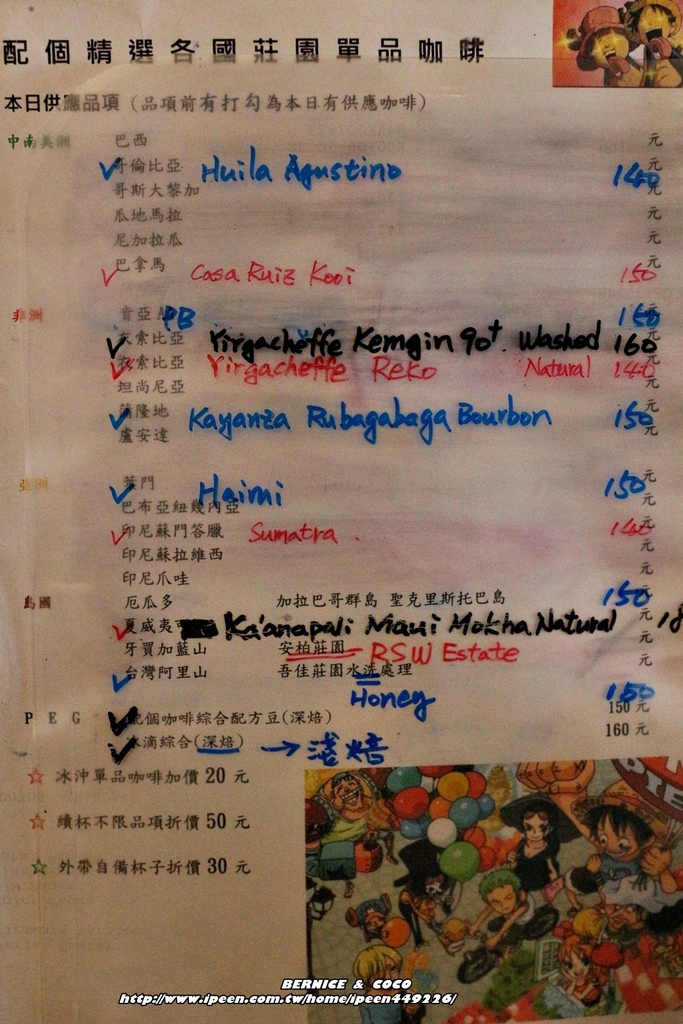 配個精選各國莊園單品咖啡
本日供應品項（品項前有打勾為本日有供應咖啡）
中南美洲 巴西 元
✓ 哥倫比亞 Huila Agustino 140 元
哥斯大黎加 元
瓜地馬拉 元
尼加拉瓜 元
✓ 巴拿馬 Casa Ruiz Kooi 150 元
非洲 肯亞 PB 150 元
✓ 衣索比亞 Yirgacheffe Kemgin 90+. Washed 160 元
✓ 衣索比亞 Yirgacheffe Reko Natural 140 元
坦尚尼亞 元
✓ 蒲隆地 Kayanza Rubagabaga Bourbon 150 元
盧安達 元
亞洲 ✓ 葉門 Haimi 150 元
巴布亞紐幾內亞 元
✓ 印尼蘇門答臘 Sumatra. 140 元
印尼蘇拉維西 元
印尼爪哇 元
島國 厄瓜多 加拉巴哥群島 聖克里斯托巴島 150 元
✓ 夏威夷 Ka'anapali Maui Mokha Natural 18
牙買加藍山 安柏莊園 RSW Estate 元
✓ 台灣阿里山 吾佳莊園水洗處理 Honey 150 元
PEG ✓ 配個咖啡綜合配方豆(深焙) 150 元
✓ 冰滴綜合(深焙) → 淺焙 160 元
☆ 冰沖單品咖啡加價 20 元
☆ 續杯不限品項折價 50 元
☆ 外帶自備杯子折價 30 元
BERNICE & COCO
http://www.ipeen.com.tw/home/ipeen449226/